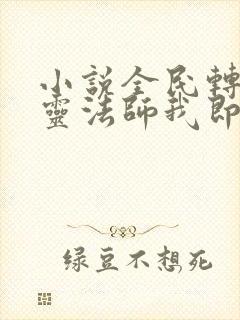 小說全民轉
靈法師我即
綠豆不想死